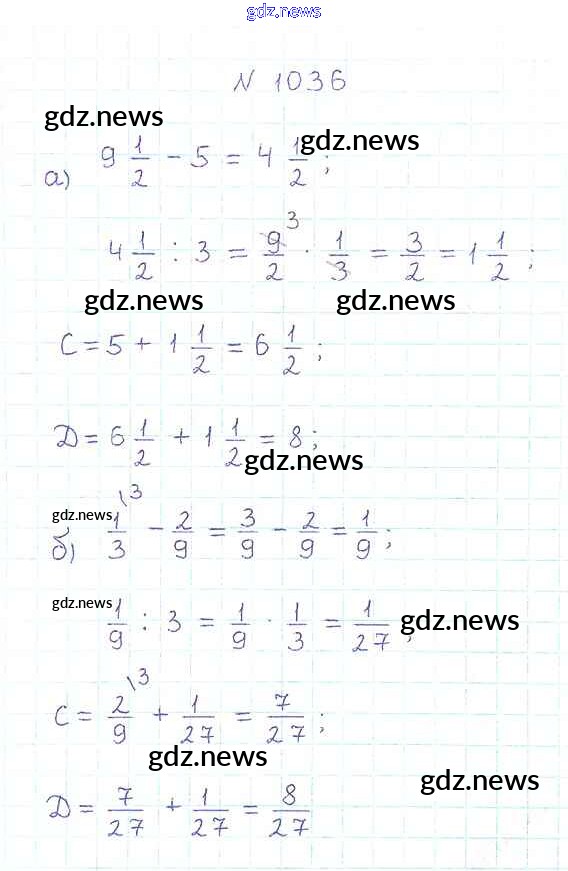 gdz.news
N 1036
gdz.news
gdz.news
а) 9 1/2 - 5 = 4 1/2 ;
4 1/2 : 3 = 9/2 ³ · 1/3 = 3/2 = 1 1/2 ;
gdz.news
gdz.news
C = 5 + 1 1/2 = 6 1/2 ;
D = 6 1/2 + 1 1/2 = 8 ;
gdz.news
gdz.news
б) 1/3 \3 - 2/9 = 3/9 - 2/9 = 1/9 ;
gdz.news
1/9 : 3 = 1/9 · 1/3 = 1/27 ;
gdz.news
C = 2/9 \3 + 1/27 = 7/27 ;
gdz.news
gdz.news
D = 7/27 + 1/27 = 8/27